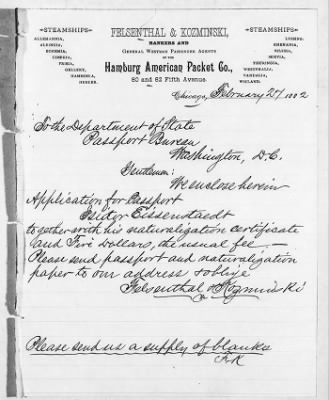 STEAMSHIPS
ALLEMANNIA,
ALBINGIA,
BOHEMIA,
CIMBRIA,
FRISIA,
GELLERT,
HAMMONIA,
HERDER,
FELSENTHAL & KOZMINSKI,
BANKERS AND
GENERAL WESTERN PASSENGER AGENTS
OF THE
Hamburg American Packet Co.,
80 and 82 Fifth Avenue.
STEAMSHIPS
LESSING,
RHENANIA,
SILESIA,
SUEVIA,
THURINGIA,
WESTPHALIA,
VANDALIA,
WIELAND.
Chicago, February 27 1882
To the Department of State
Passport Bureau
Washington, D.C.
Gentlemen:
We enclose herein
Application for Passport
Isidor Eissenstaedt
together with his naturalization certificate
and Five Dollars, the usual fee. —
Please send passport and naturalization
paper to our address & oblige
Felsenthal & Kozminski
Please send us a supply of blanks
F&K